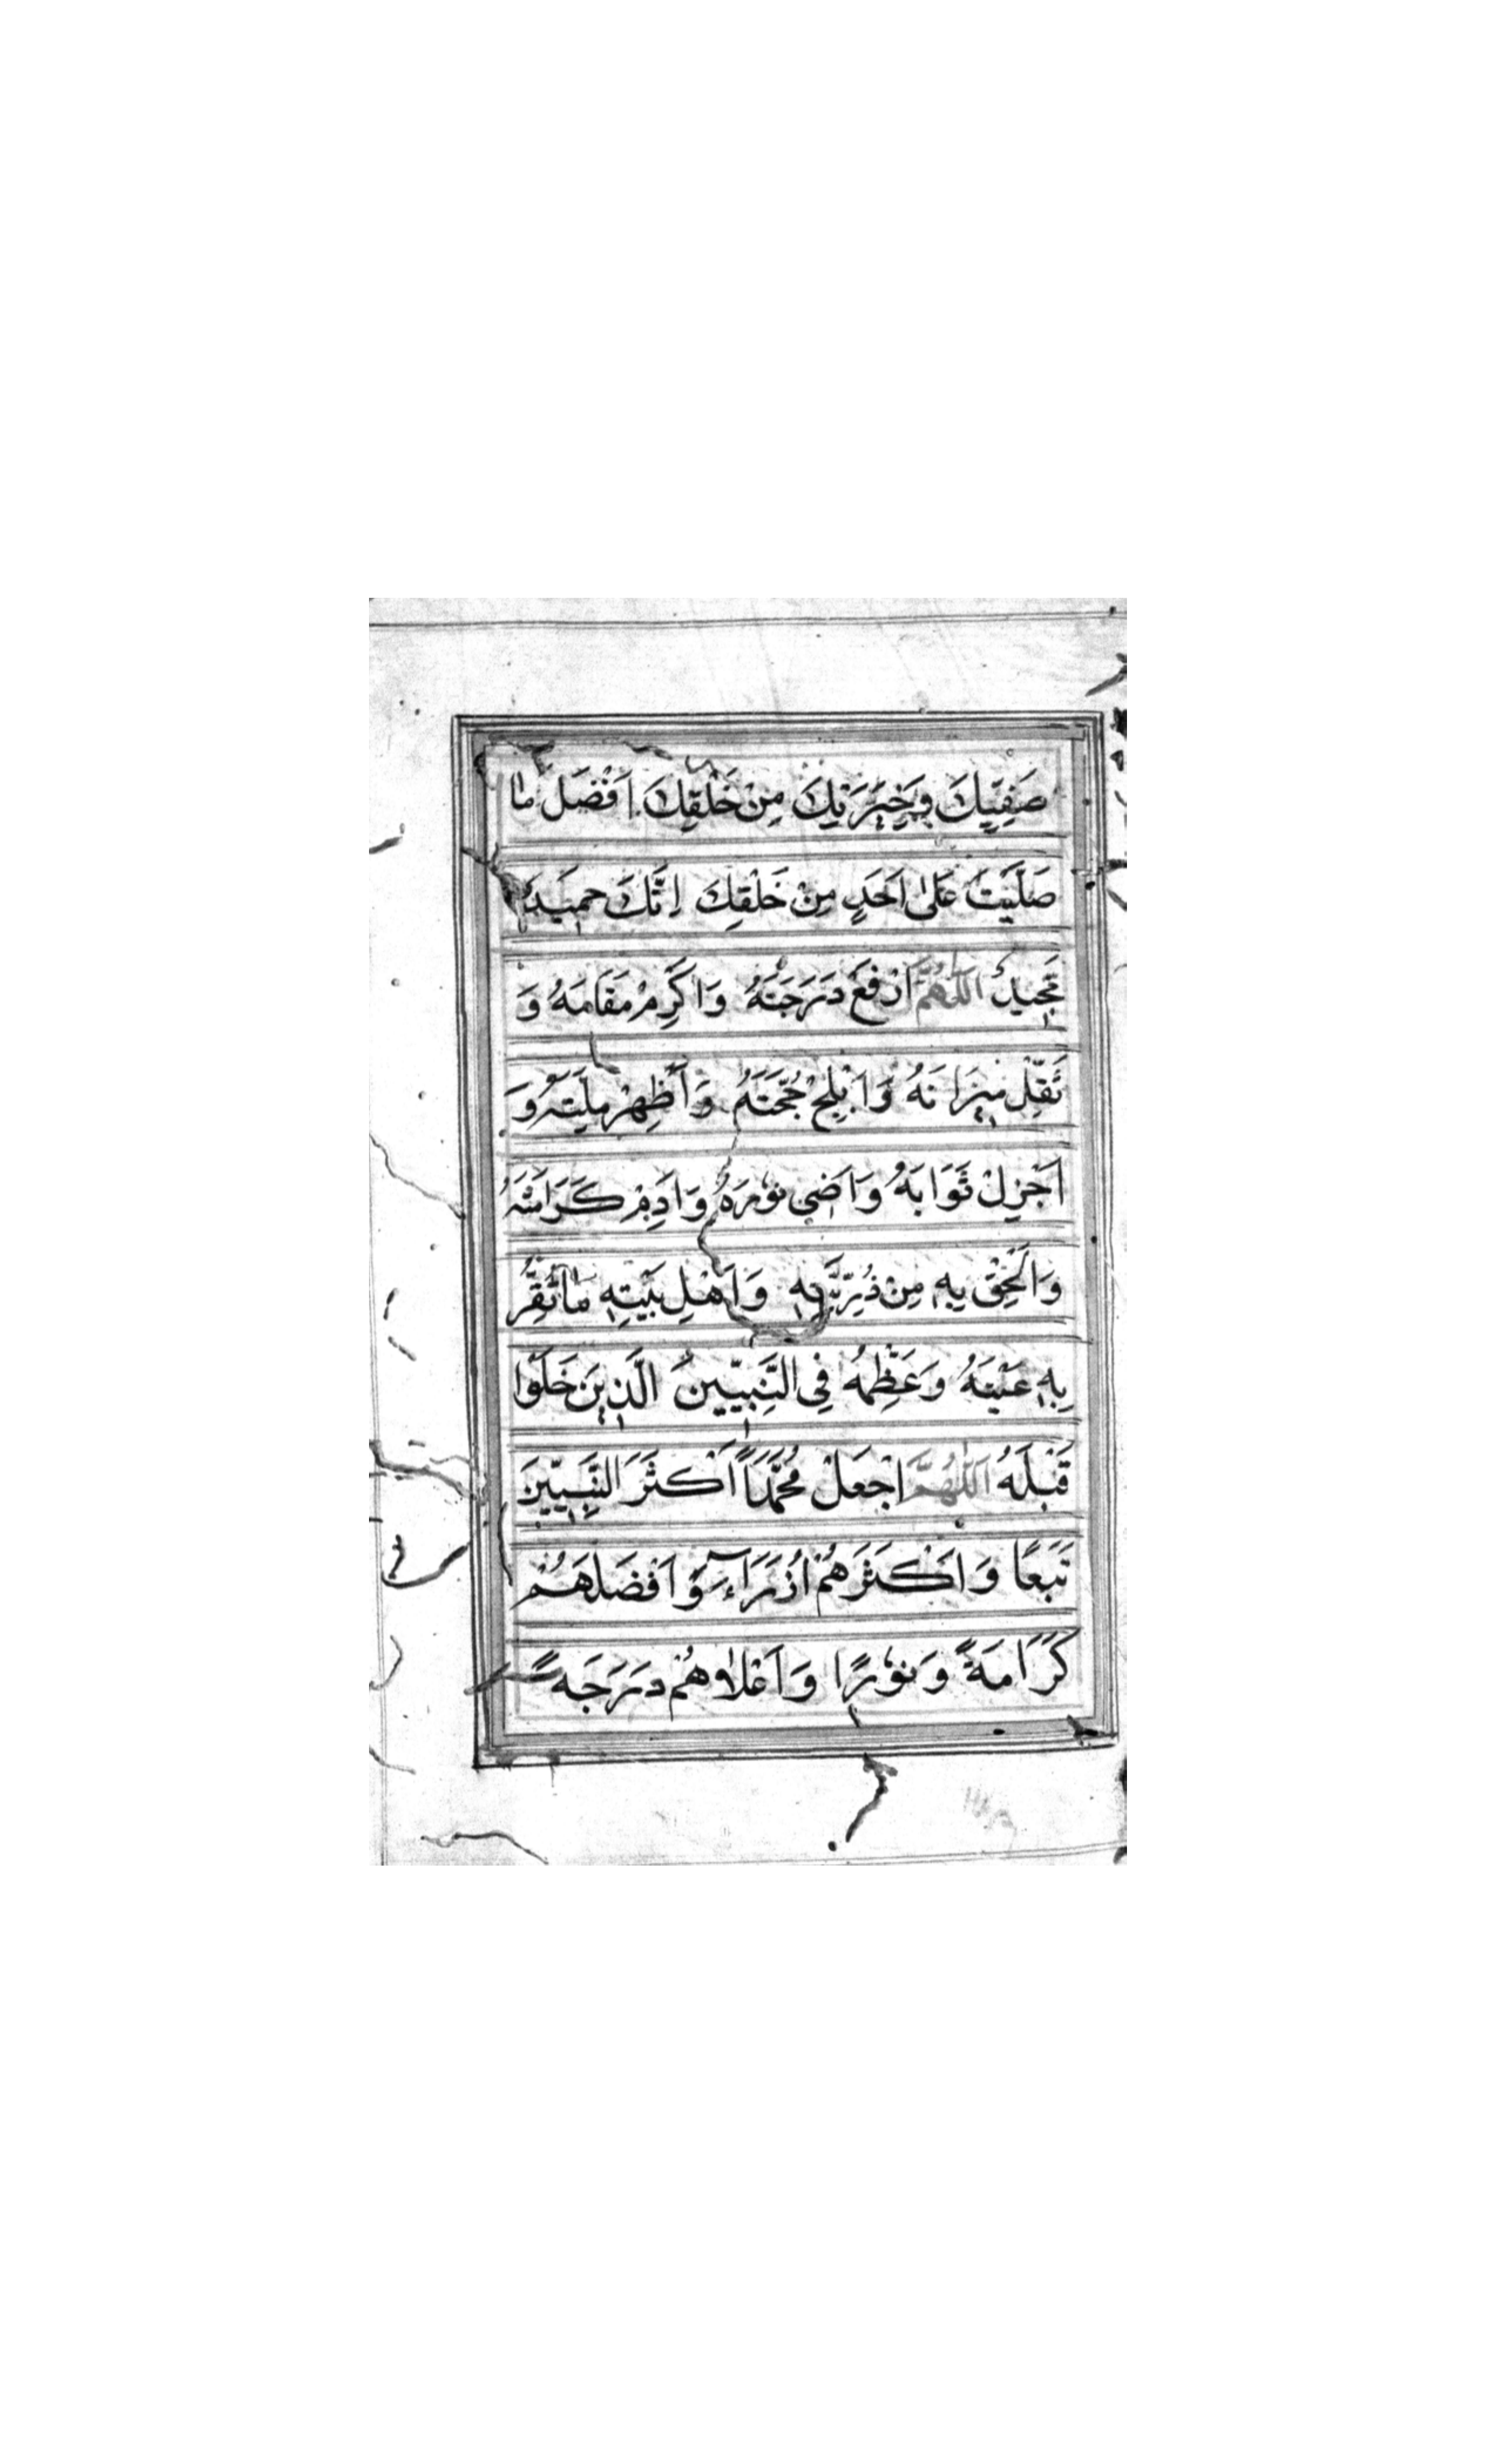 صَفِيِّكَ وَخِيَرَتِكَ مِنْ خَلْقِكَ اَفْضَلَ مَا
صَلَّيْتَ عَلٰى اَحَدٍ مِنْ خَلْقِكَ اِنَّكَ حَمِيدٌ
مَجِيدٌ اَللّٰهُمَّ ارْفَعْ دَرَجَتَهُ وَاَكْرِمْ مَقَامَهُ وَ
ثَقِّلْ مِيزَانَهُ وَاَبْلِجْ حُجَّتَهُ وَاَظْهِرْ مِلَّتَهُ وَ
اَجْزِلْ ثَوَابَهُ وَاَضِئ نُورَهُ وَاَدِمْ كَرَامَتَهُ
وَاَلْحِقْ بِهِ مِنْ ذُرِّيَّتِهِ وَاَهْلِ بَيْتِهِ مَا تُقِرُّ
بِهِ عَيْنَهُ وَعَظِّمْهُ فِى النَّبِيّينَ الَّذِينَ خَلَوْا
قَبْلَهُ اَللّٰهُمَّ اجْعَلْ مُحَمَّدًا اَكْثَرَ النَّبِيّينَ
تَبَعًا وَاَكْثَرَهُمْ اُزَرَاءَ وَاَفْضَلَهُمْ
كَرَامَةً وَنُورًا وَاَعْلَاهُمْ دَرَجَةً